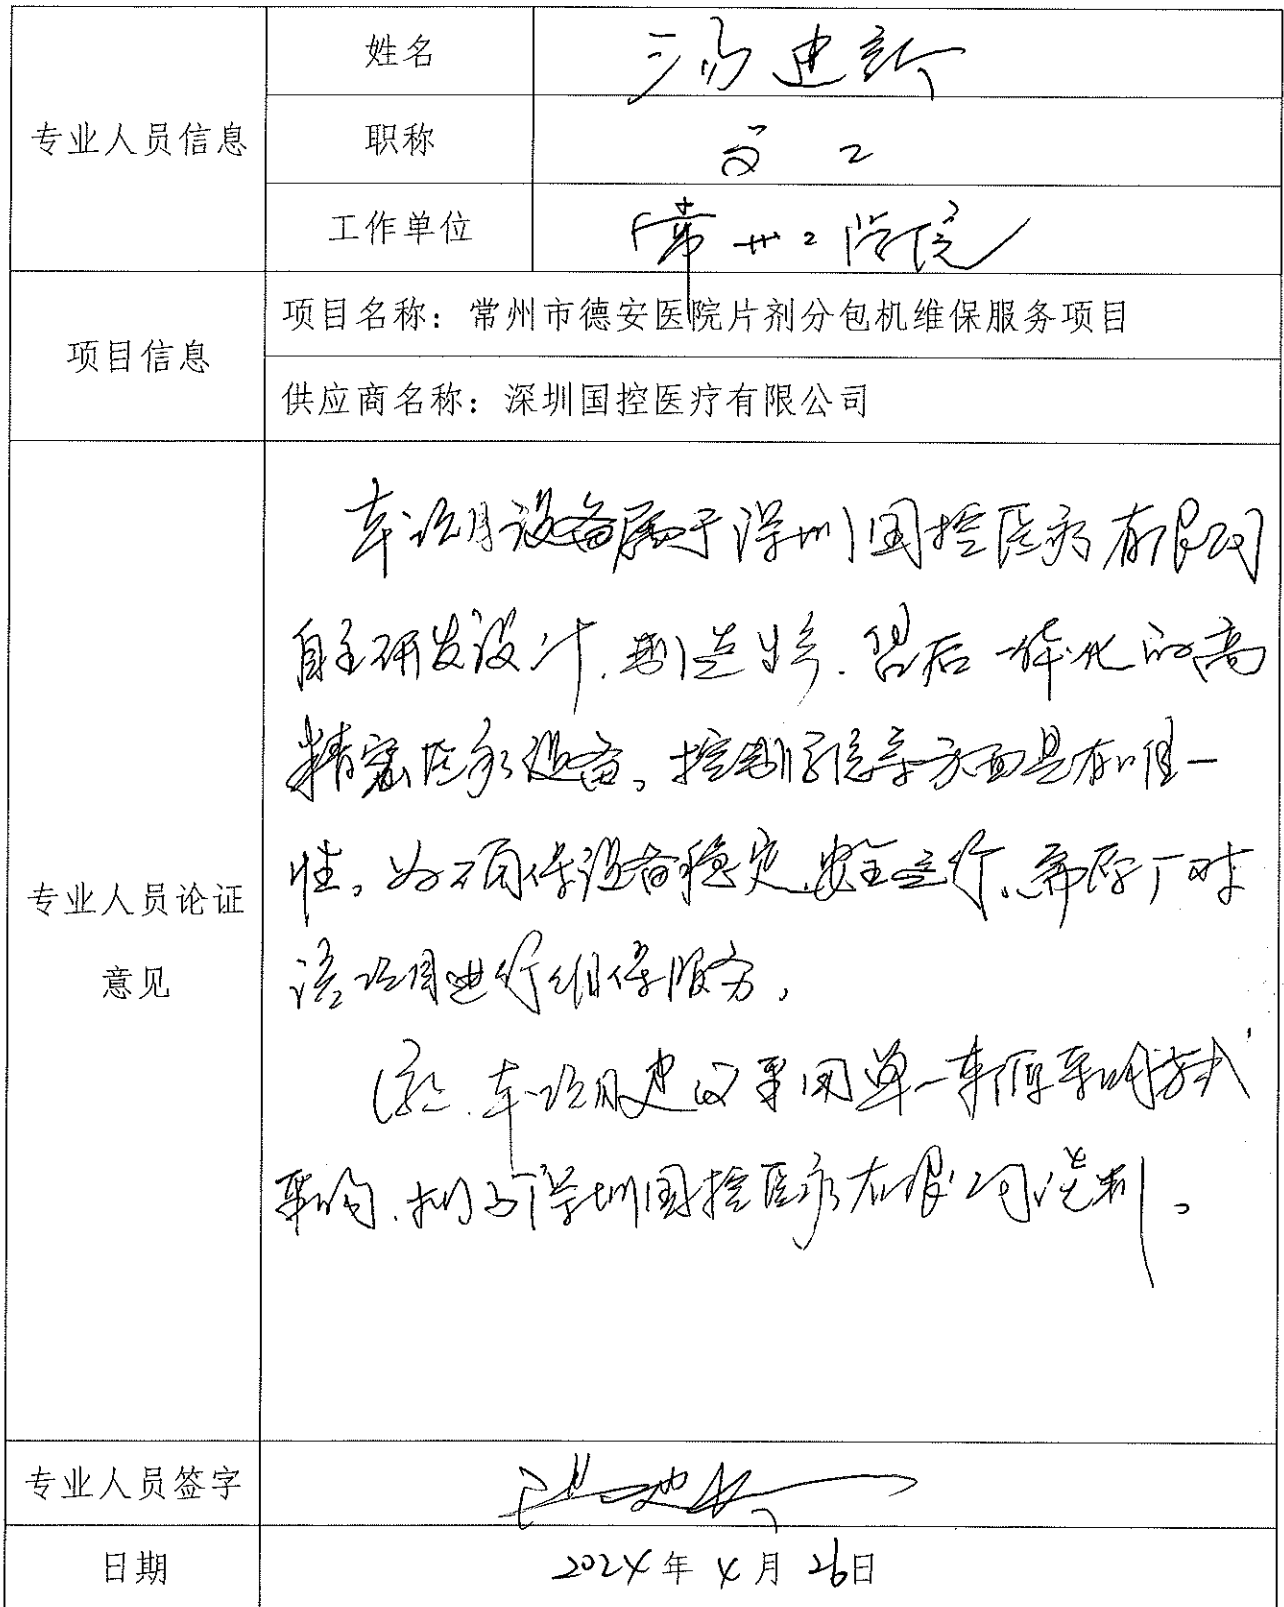 专业人员信息
姓名
汤建新
职称
高工
工作单位
常州工学院
项目信息
项目名称：常州市德安医院片剂分包机维保服务项目
供应商名称：深圳国控医疗有限公司
专业人员论证
意见
本项目设备属于深圳国控医疗有限公司
自主研发设计、制造生产、售后一体化的高
精密医疗设备。控制系统等方面具有唯一
性。为确保设备稳定、安全运行、需原厂对
该项目进行维保服务，
本项目建议采用单一来源采购方式
采购，深圳国控医疗有限公司谈判。
专业人员签字
日期
2024年4月26日